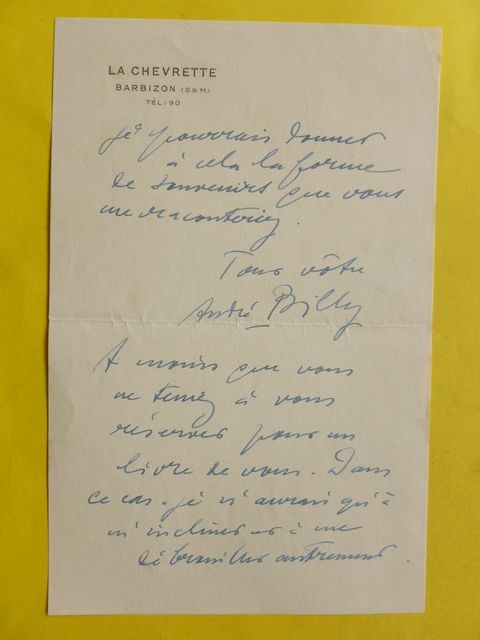 LA CHEVRETTE
BARBIZON (S.&M.)
TÉL: 90
je pourrais donner
à cela la forme
de souvenirs que vous
me raconteriez.
Tous vôtre
André Billy
A moins que vous
ne teniez à vous
réserver pour un
livre de vous. Dans
ce cas, je n'aurai qu'à
m'incliner et à me
débrouiller autrement.